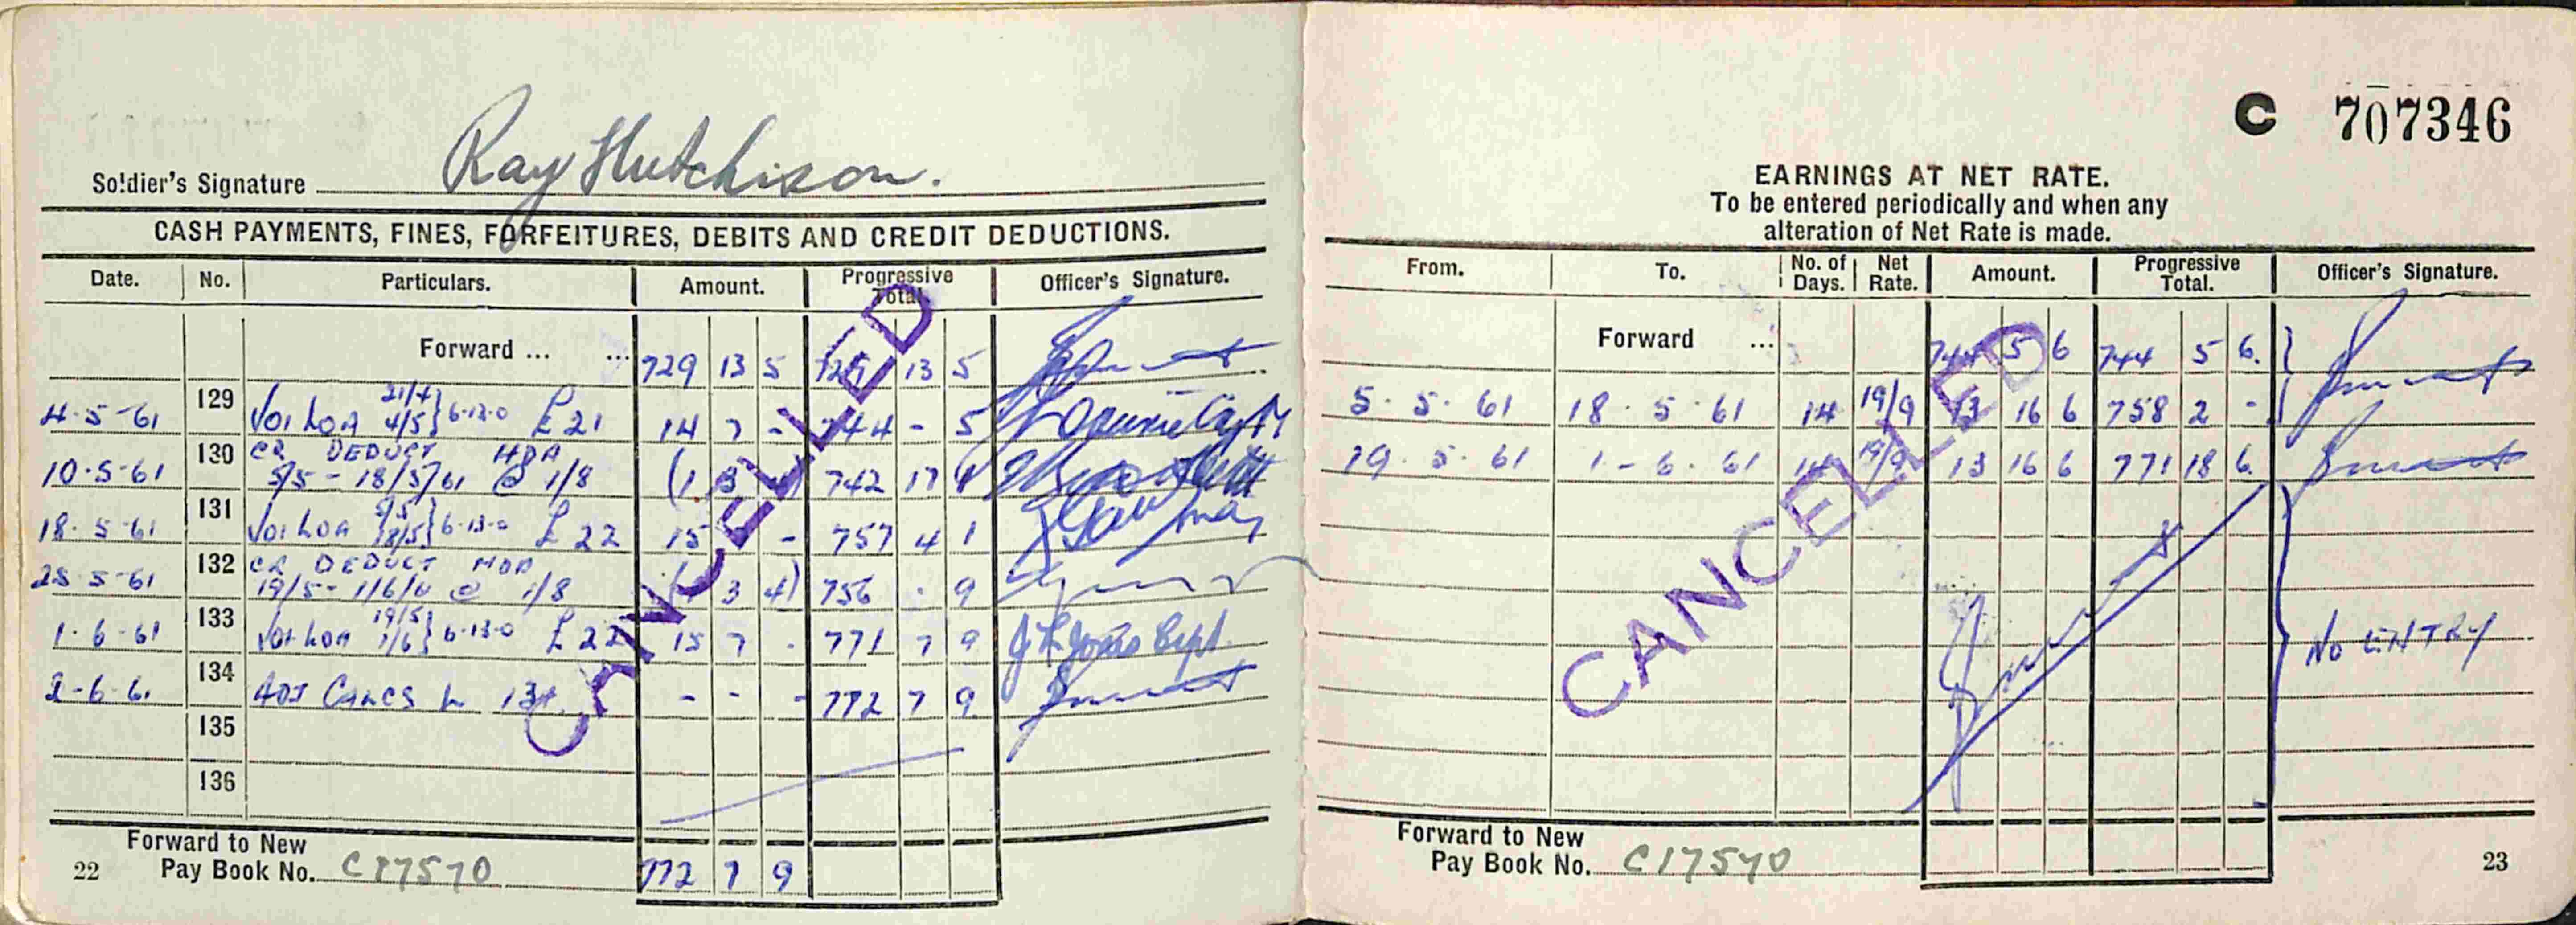 Soldier's Signature Ray Hutchison.
CASH PAYMENTS, FINES, FORFEITURES, DEBITS AND CREDIT DEDUCTIONS.
Date. No. Particulars. Amount. Progressive Total. Officer's Signature.
Forward ... ... 729 13 5 729 13 5
4-5-61 129 21/4 4/5 } 6-13-0 £21 14 7 - 744 - 5
10-5-61 130 CR DEDUCT HDA 5/5 - 18/5/61 @ 1/8 (1 3 4) 742 17 1
18-5-61 131 5/5 18/5 } 6-13-0 £22 15 7 - 757 4 1
25-5-61 132 CR DEDUCT 19/5 - 1/6/61 @ 1/8 (1 3 4) 756 - 9
1-6-61 133 19/5 1/6 } 6-13-0 £22 15 7 - 771 7 9
2-6-6. 134 ADJ - - - 772 7 9
135
136
CANCELLED
Forward to New
Pay Book No. C17570 772 7 9
22
C 707346
EARNINGS AT NET RATE.
To be entered periodically and when any
alteration of Net Rate is made.
From. To. No. of Days. Net Rate. Amount. Progressive Total. Officer's Signature.
Forward ... 744 5 6 744 5 6.
5.5.61 18.5.61 14 19/9 13 16 6 758 2 -
19.5.61 1-6.61 14 19/9 13 16 6 771 18 6.
NO ENTRY
CANCELLED
Forward to New
Pay Book No. C17570
23